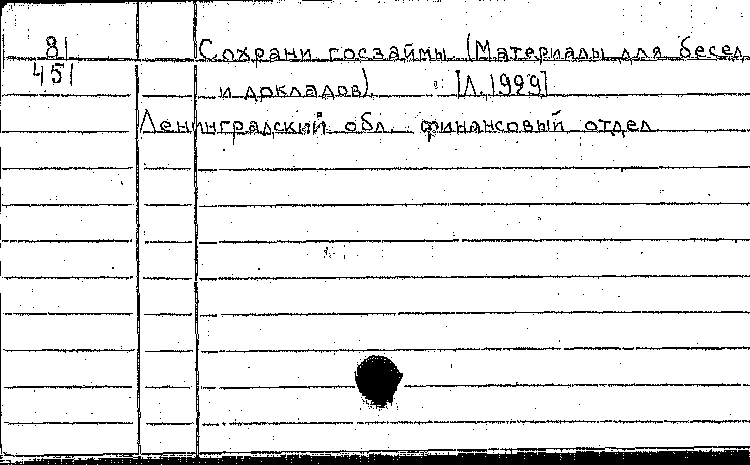 81 Сохрани госзаймы (Материалы для бесед
451 и докладов). [Л. 1929]
Ленинградский обл. финансовый отдел